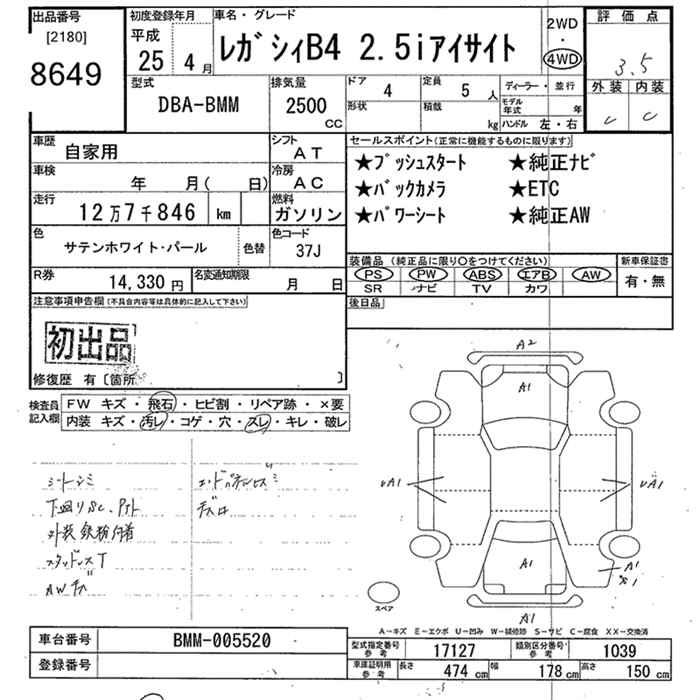 出品番号
[2180]
8649
初度登録年月
平成
25 4月
車名・グレード
レガシィB4 2.5iアイサイト
2WD
・
4WD
評価点
3.5
外装 内装
C C
型式
DBA-BMM
排気量
2500
CC
ドア 4
定員 5 人
形状
積載 kg
ディーラー・並行
モデル年式 年
ハンドル 左・右
車歴
自家用
シフト
AT
車検
年 月( 日)
冷房
AC
走行
12万7千846 km
燃料
ガソリン
色
サテンホワイト・パール
色替
色コード
37J
R券
14,330円
名変通知期限
月 日
セールスポイント(正常に機能するものに限ります)
★プッシュスタート ★純正ナビ
★バックカメラ ★ETC
★パワーシート ★純正AW
装備品(純正品に限り○をつけてください)
PS PW ABS エアB AW
SR ナビ TV カワ
新車保証書
有・無
後日品
注意事項申告欄(不具合内容等は具体的に記入して下さい)
初出品
修復歴 有〔箇所 〕
検査員記入欄
FW キズ・飛石・ヒビ割・リペア跡・×要
内装 キズ・汚レ・コゲ・穴・スレ・キレ・破レ
シートシミ
下回りSC.
外装鉄粉付着
スタッドレスT
AWキズ
A2
A1
UA1
UA1
A1
A1
A1
スペア
A-キズ E-エクボ U-凹み W-補修跡 S-サビ C-腐食 XX-交換済
車台番号
BMM-005520
登録番号
型式指定番号参考 17127
類別区分番号参考 1039
車庫証明用参考
長さ 474cm
幅 178cm
高さ 150cm